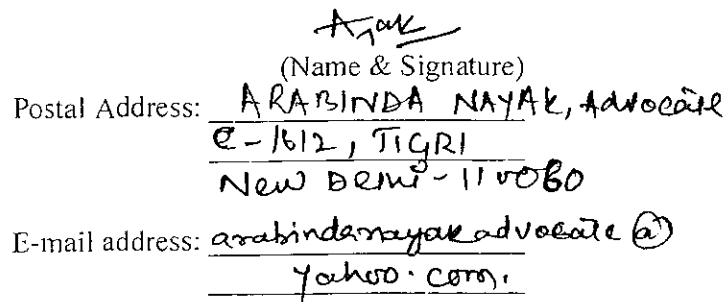 (Name & Signature)
Postal Address: ARABINDA NAYAK, Advocate
C-1612, TIGRI
New Delhi-110060
E-mail address: arabindanayakadvocate@
yahoo.com.